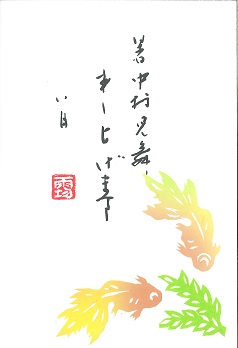 暑中御見舞
申し上げます
八月